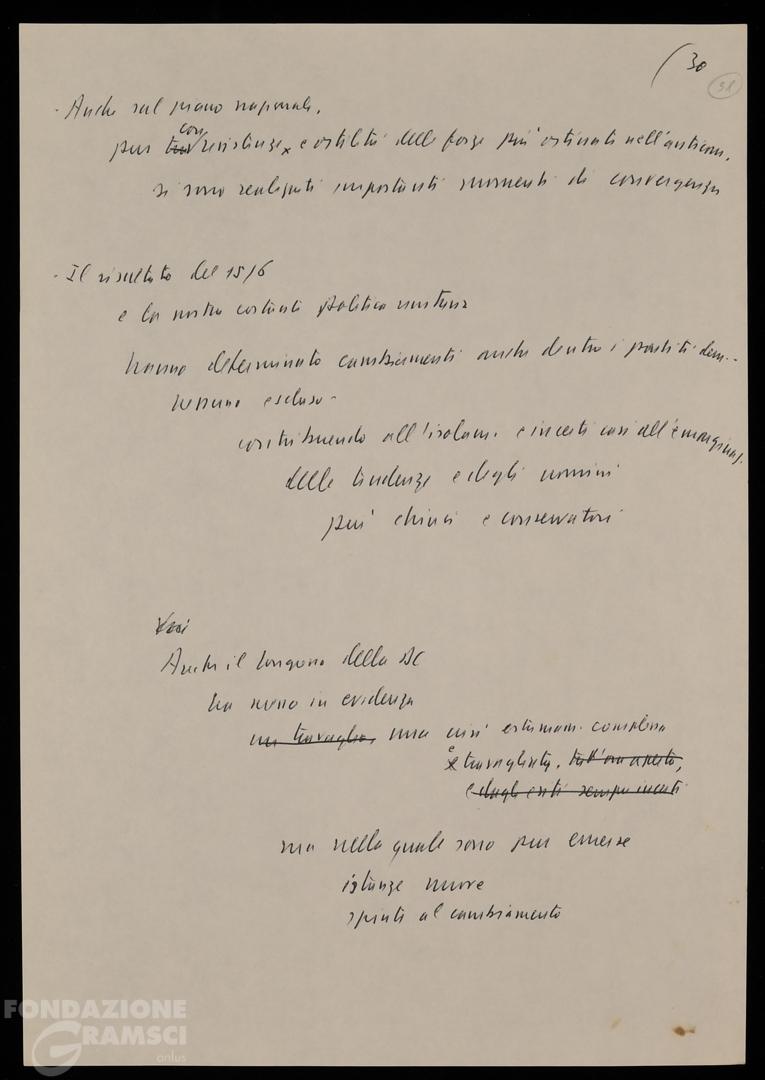 (30
31
- Anche sul piano nazionale,
pur tra con resistenze e ostilità delle forze più ostinate nell'anticom.
si sono realizzati importanti momenti di convergenza
- Il risultato del 15/6
e la nostra costante politica unitaria
hanno determinato cambiamenti anche dentro i partiti dem.-
nessuno escluso -
contribuendo all'isolam. e in certi casi all'emarginaz.
delle tendenze e degli uomini
più chiusi e conservatori
Anche il congresso della DC
ha messo in evidenza
un travaglio, una crisi estremam. complessa
e travagliata, tutt'ora aperta,
e dagli esiti sempre incerti
ma nella quale sono pur emerse
istanze nuove
spinte al cambiamento
FONDAZIONE
GRAMSCI
onlus